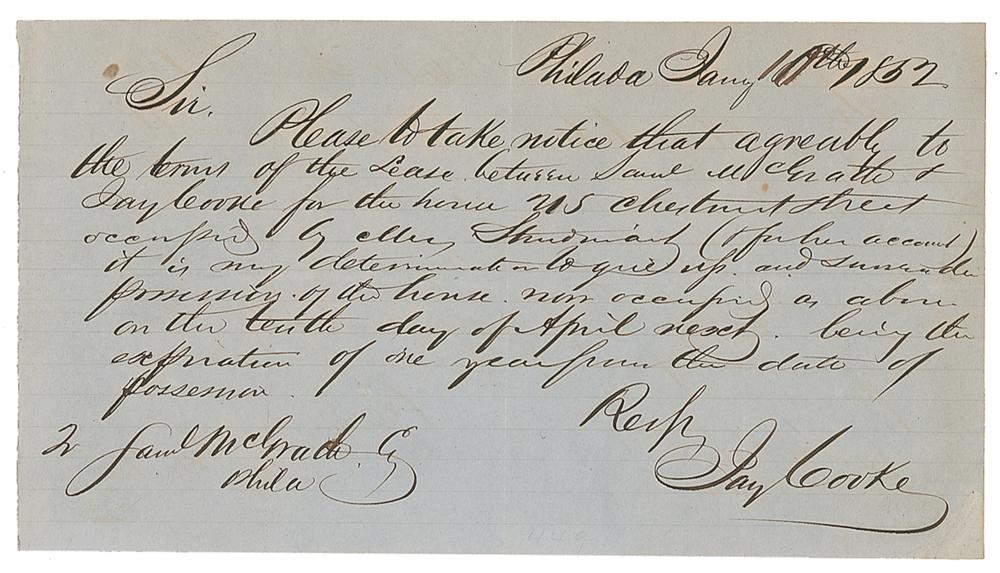 Philada Jany 10th 1852
Sir.
Please to take notice that agreeably to
the terms of the Lease between Saml McGrath &
Jay Cooke for the house 215 Chestnut street
occupied by (& for her account)
it is my determination to give up and surrender
possession of the house now occupied as above
on the tenth day of April next. being the
expiration of one year from the date of
possession.
Resp
Jay Cooke
Saml McGrath Esq
Phila